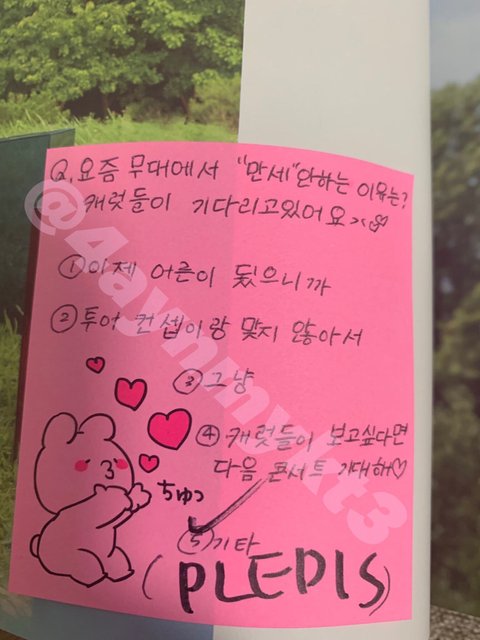 Q. 요즘 무대에서 "만세" 안하는 이유는?
캐럿들이 기다리고있어요ㅠ
① 이제 어른이 됬으니까
② 투어 컨셉이랑 맞지 않아서
③ 그냥
④ 캐럿들이 보고싶다면
다음 콘서트 기대해♡
ちゅっ
⑤ 기타
(PLEDIS)
@4aymmykt3